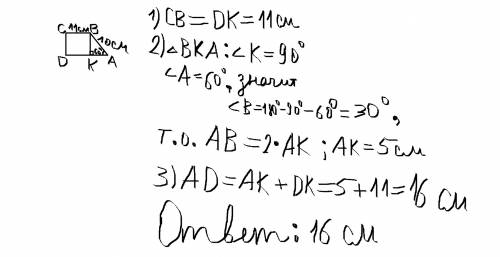 C 11см B
10см
60°
D K A
1) CB = DK = 11 см
2) ∠BKA: ∠K = 90°
∠A = 60°, значит
∠B = 180° - 90° - 60° = 30°,
т.о. AB = 2·AK ; AK = 5 см
3) AD = AK + DK = 5 + 11 = 16 см
Ответ: 16 см